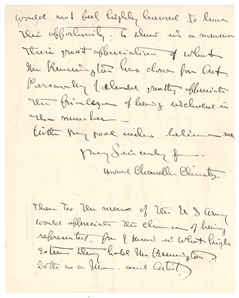 would not feel highly honored to have
this opportunity, to show in a measure
their great appreciation of what
Mr Remington has done for art.
Personally I should greatly appreciate
the privilege of being included in
the number.
With my good wishes believe me
Very Sincerely yours
Howard Chandler Christy
the men of the U S Army
would appreciate the chance of being
represented, for I know in what high
esteem they hold Mr Remington
both as a Man and Artist